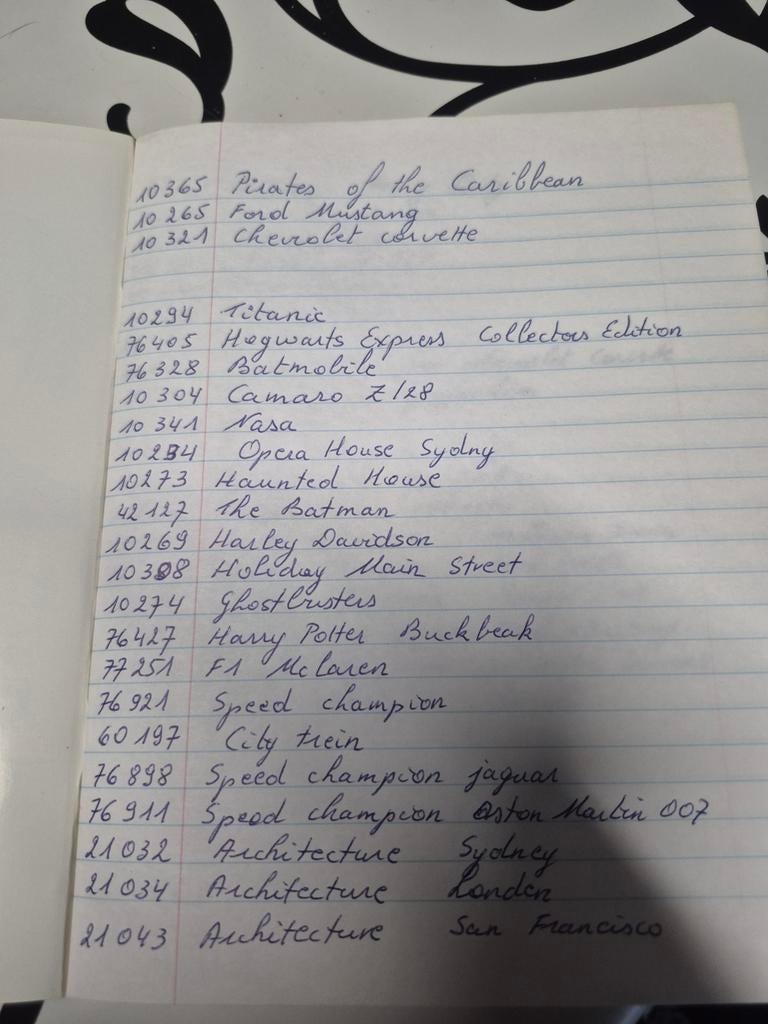 10365 Pirates of the Caribbean
10265 Ford Mustang
10321 Chevrolet corvette
10294 Titanic
76405 Hogwarts Express Collectors Edition
76328 Batmobile
10304 Camaro Z/28
10341 Nasa
10234 Opera House Sydny
10273 Haunted House
42127 The Batman
10269 Harley Davidson
10308 Holiday Main Street
10274 Ghostbusters
76427 Harry Potter Buckbeak
77251 F1 Mclaren
76921 Speed champion
60197 City trein
76898 Speed champion jaguar
76911 Speed champion Aston Martin 007
21032 Architecture Sydney
21034 Architecture London
21043 Architecture San Francisco